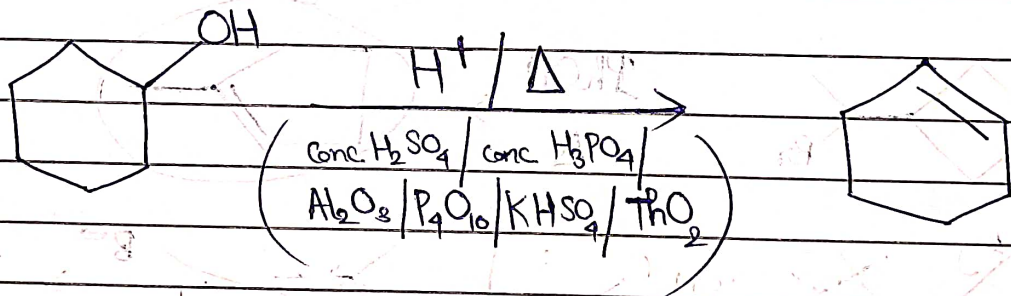 OH
H⁺/Δ
(conc. H₂SO₄/conc H₃PO₄/
Al₂O₃/P₄O₁₀/KHSO₄/ThO₂)